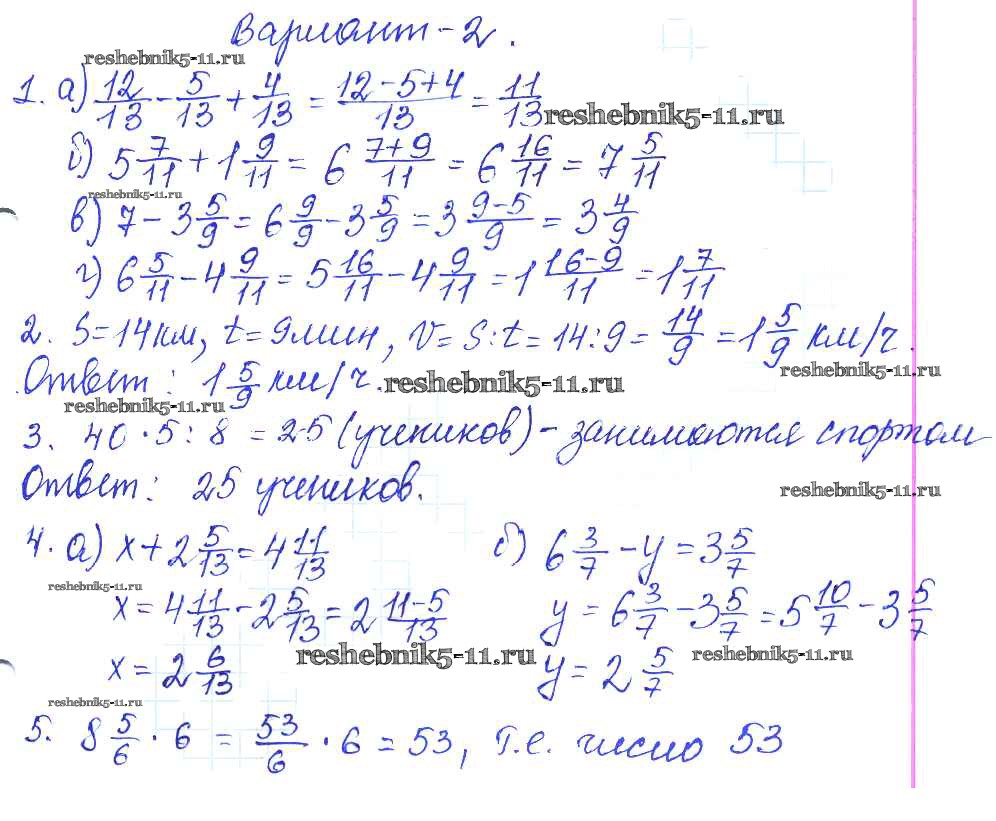 Вариант-2.
reshebnik5-11.ru
1. а) 12/13 - 5/13 + 4/13 = (12-5+4)/13 = 11/13
reshebnik5-11.ru
б) 5 7/11 + 1 9/11 = 6 (7+9)/11 = 6 16/11 = 7 5/11
reshebnik5-11.ru
в) 7 - 3 5/9 = 6 9/9 - 3 5/9 = 3 (9-5)/9 = 3 4/9
г) 6 5/11 - 4 9/11 = 5 16/11 - 4 9/11 = 1 (16-9)/11 = 1 7/11
2. S=14км, t=9мин, V=S:t=14:9= 14/9 = 1 5/9 км/г.
reshebnik5-11.ru
Ответ: 1 5/9 км/г.
reshebnik5-11.ru
reshebnik5-11.ru
3. 40·5:8=25 (учеников) - занимаются спортом
Ответ: 25 учеников.
reshebnik5-11.ru
4. а) x + 2 5/13 = 4 11/13 б) 6 3/7 - y = 3 5/7
reshebnik5-11.ru
x = 4 11/13 - 2 5/13 = 2 (11-5)/13 y = 6 3/7 - 3 5/7 = 5 10/7 - 3 5/7
reshebnik5-11.ru reshebnik5-11.ru
x = 2 6/13 y = 2 5/7
reshebnik5-11.ru
5. 8 5/6 · 6 = 53/6 · 6 = 53, т.е. число 53